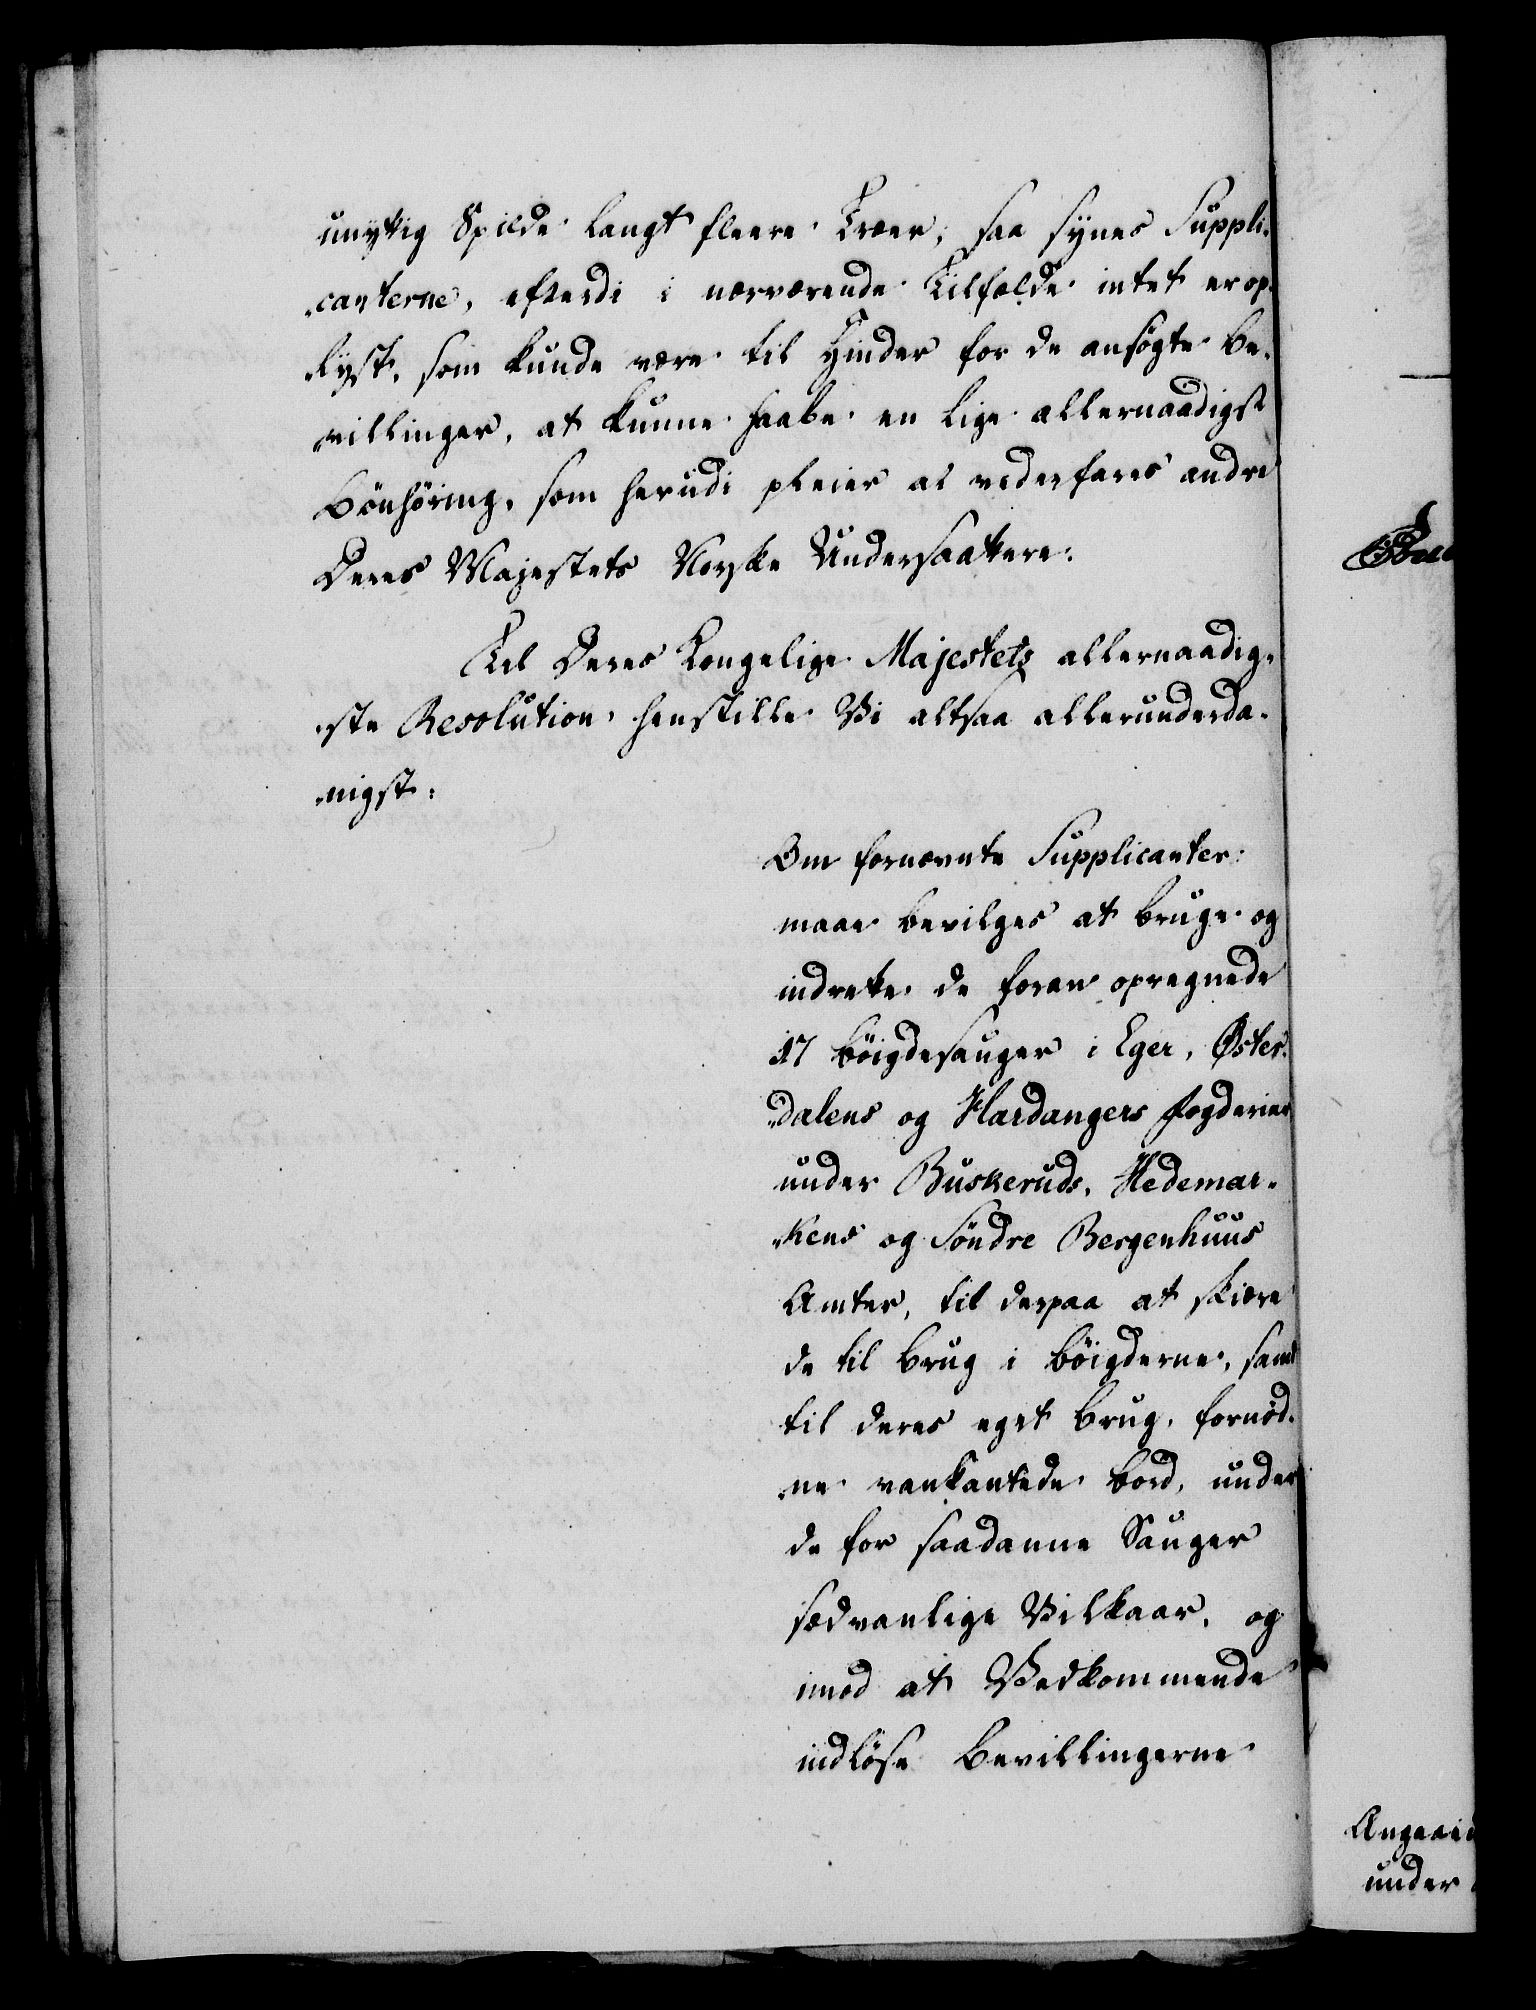 unyttig Spilde langt fleere Træer; saa synes Suppli-
canterne, efterdi i nærværende Tilfælde intet er op-
lyst, som kunde være til Hinder for de ansøgte be-
villinger, at kunne haabe en lige allernaadigst
bönhöring, som herudi pleier at vederfares andre
Deres Majestets Norske Undersaatere.
Til Deres Kongelige Majestets allernaadig-
ste Resolution henstille Vi altsaa allerunderda-
nigst:
Om fornævnte Supplicanter
maae bevilges at bruge og
indrette de foran opregnede
17 böigdesauger i Eger, Øster-
dalens og Hardangers Fogderier
under Buskeruds, Hedemar-
kens og Söndre Bergenhuus
Amter, til derpaa at skiære
de til brug i böigderne, samt
til deres eget brug, fornöd-
ne vankantede bord, under
de for saadanne Sauger
sædvanlige Vilkaar, og
imod at Vedkommende
indlöse bevillingerne
under